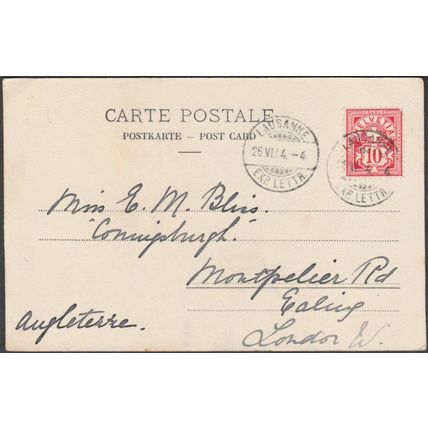 CARTE POSTALE
POSTKARTE – POST CARD
LAUSANNE
26 VI.14. –4
EXP. LETTR.
HELVETIA
10
EXP. LETTR.
Miss E. M. Bliss.
"Coningsburgh."
Montpelier Rd
Ealing
London W.
Angleterre.